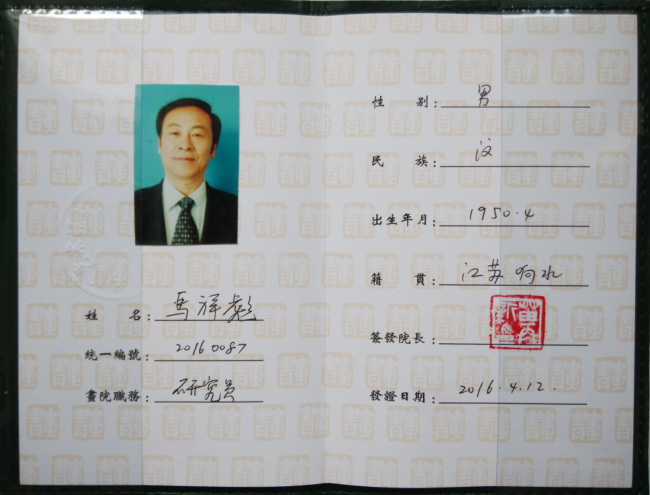 姓 名: 马祥彪
統一編號: 20160087
畫院職務: 研究员
性 别: 男
民 族: 汉
出生年月: 1950.4
籍 貫: 江苏响水
簽發院長:
發證日期: 2016.4.12.